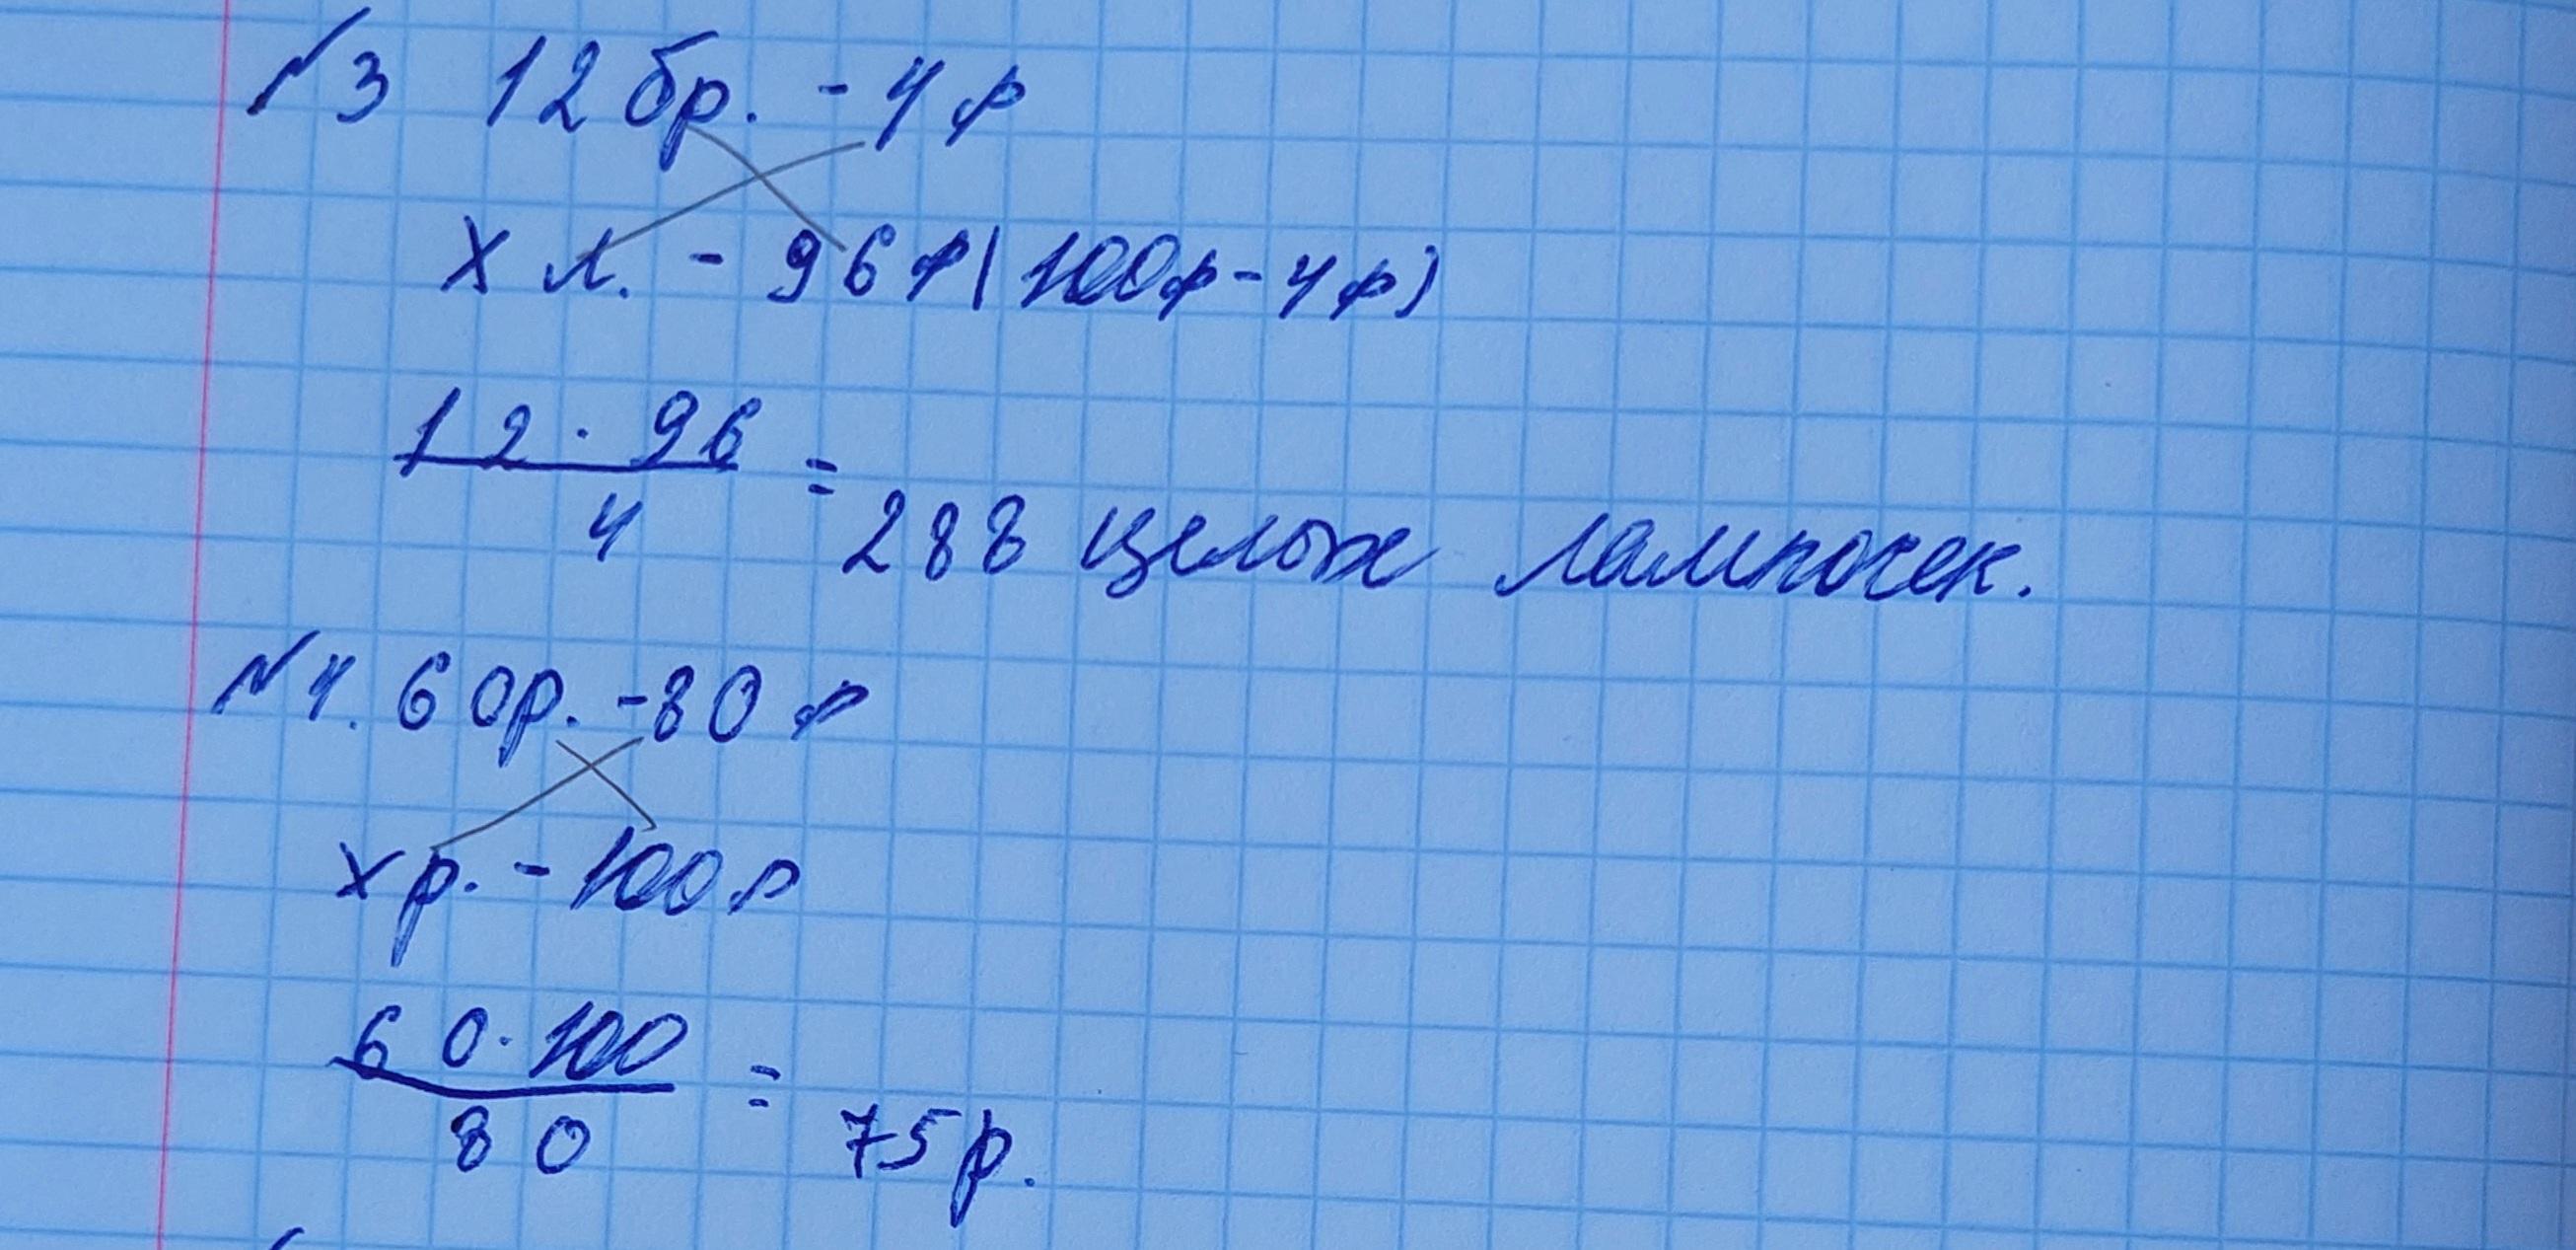 №3 12 бр. - 4%
х л. - 96% (100% - 4%)
12 · 96
4
= 288 целых лампочек.
№4. 60р. - 80%
х р. - 100%
60 · 100
80
= 75р.